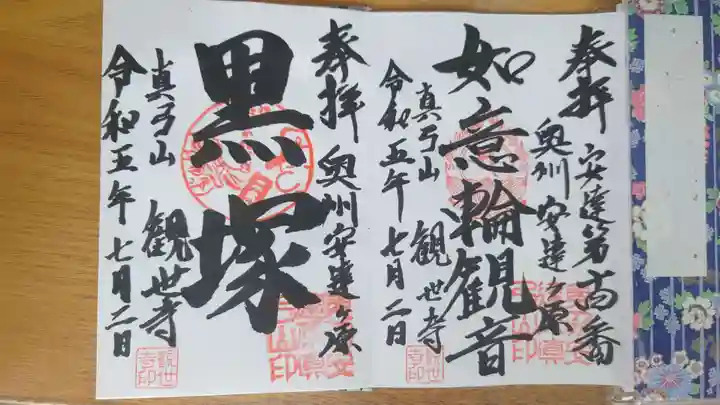 奉拝 安達第六番
奥州安達ヶ原
如意輪観音
真弓山 観世寺
令和五年七月二日
奉拝 奥州安達ヶ原
黒塚
真弓山 観世寺
令和五年七月二日